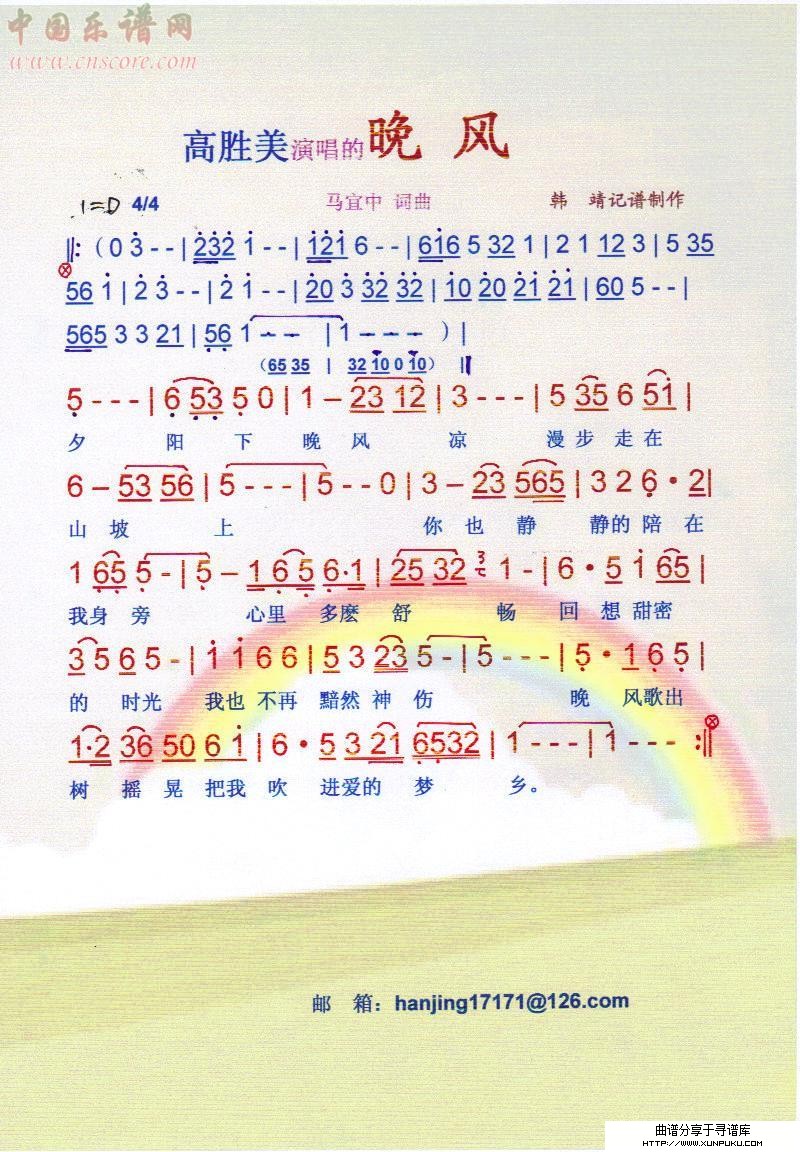 中国乐谱网
www.cnscore.com
高胜美演唱的晚 风
1=D 4/4 马宜中 词曲 韩 靖记谱制作
‖:（0 3 - - | 232 1 - - | 121 6 - - | 616 5 32 1 | 2 1 12 3 | 5 35
56 1 | 2 3 - - | 2 1 - - | 20 3 32 32 | 10 20 21 21 | 60 5 - - |
565 3 3 21 | 56 1 - - | 1 - - - ）|
（65 35 | 32 10 0 10） ‖
5 - - - | 6 53 5 0 | 1 - 23 12 | 3 - - - | 5 35 6 51 |
夕 阳 下 晚 风 凉 漫 步 走 在
6 - 53 56 | 5 - - - | 5 - - 0 | 3 - 23 565 | 3 2 6 · 2 |
山 坡 上 你 也 静 静的 陪 在
1 65 5 - | 5 - 1 6 5 6·1 | 25 32 3 1 - | 6 · 5 1 65 |
我身 旁 心里 多麽 舒 畅 回 想 甜密
3 5 6 5 - | 1 1 6 6 | 5 3 23 5 - | 5 - - - | 5 · 1 6 5 |
的 时光 我也 不再 黯然 神 伤 晚 风歌出
1·2 36 50 6 1 | 6 · 5 3 21 6532 | 1 - - - | 1 - - - :‖
树 摇 晃 把我 吹 进爱的 梦 乡。
邮 箱：hanjing17171@126.com
曲谱分享于寻谱库
HTTP://WWW.XUNPUKU.COM